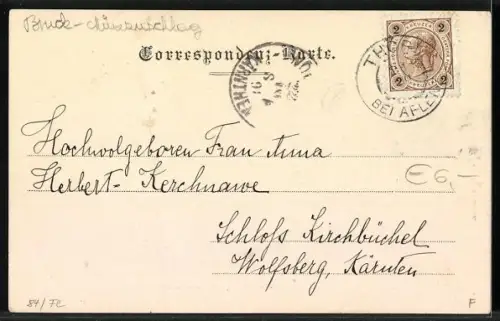 Bruck-Mürzzuschlag
Correspondenz-Karte.
2 2
2 2
TH
BEI AFLEN
KÄRNTHEN
Hochwolgeboren Frau Anna
Herbert-Kerchnawe
€6,-
Schloſs Kirchbüchel
Wolfsberg, Kärnten
84/72
F